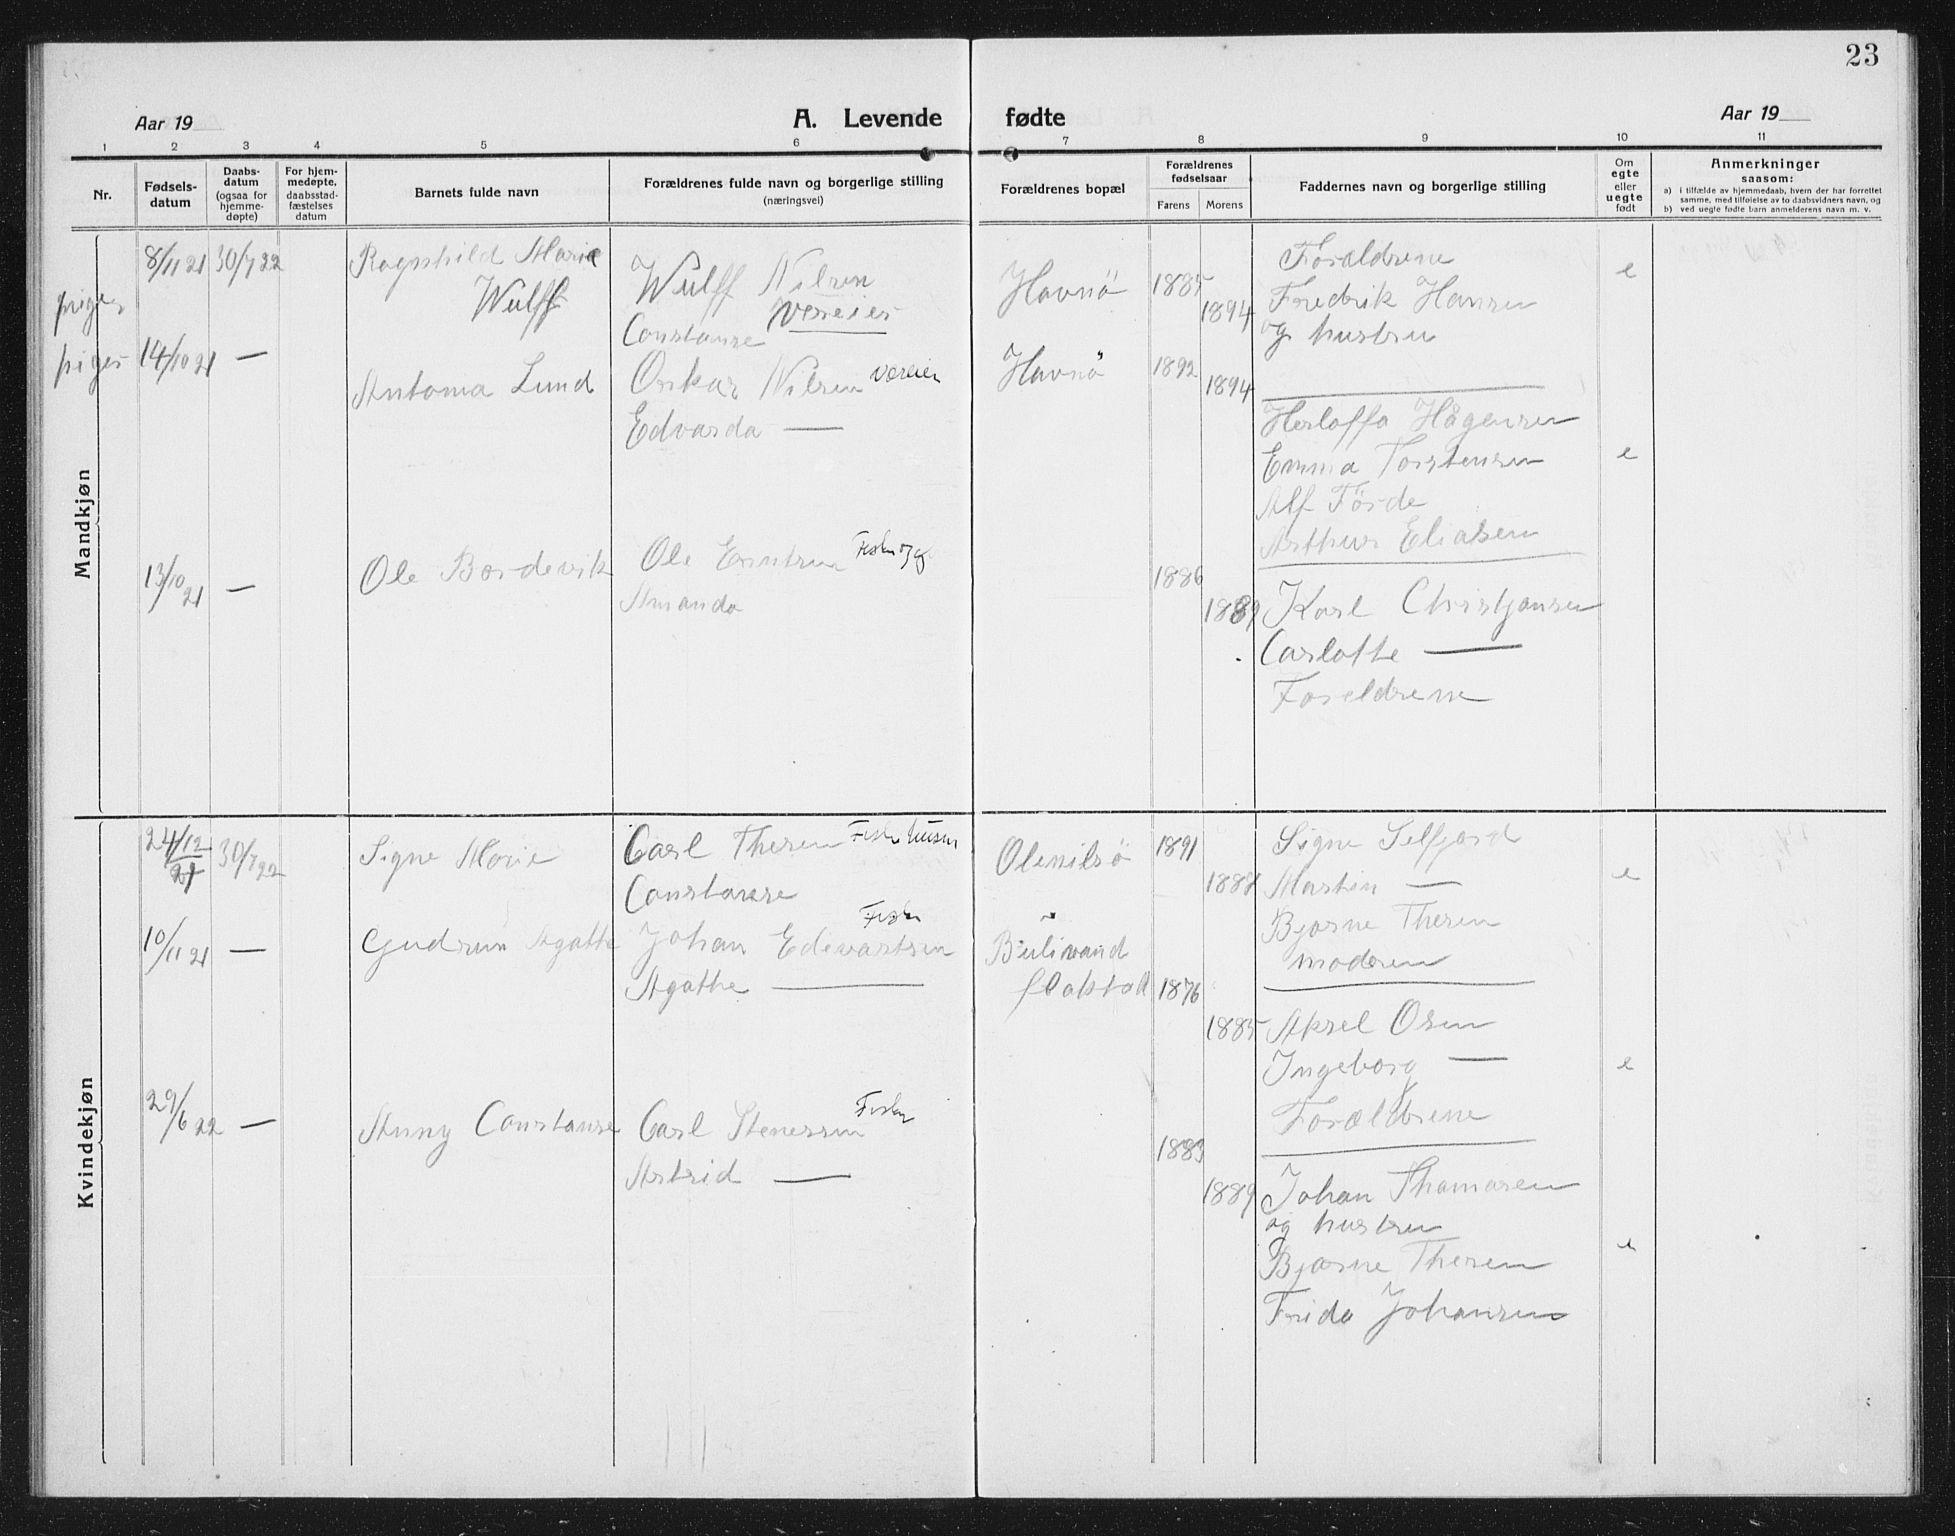 23
Aar 19
A. Levende fødte
Aar 19
1 2 3 4 5 6 7 8 9 10 11
Nr.
Fødsels-
datum
Daabs-
datum
(ogsaa for
hjemme-
døpte)
For hjem-
medøpte,
daabsstad-
fæstelses
datum
Barnets fulde navn
Forældrenes fulde navn og borgerlige stilling
(næringsvei)
Forældrenes bopæl
Forældrenes
fødselsaar
Farens Morens
Faddernes navn og borgerlige stilling
Om
egte
eller
uegte
født
Anmerkninger
saasom:
a) i tilfælde av hjemmedaab, hvem der har forrettet
samme, med tilføielse av to daabsvidners navn, og
b) ved uegte fødte barn anmelderens navn m. v.
Mandkjøn
piger
8/11 21 30/7 22 Ragnhild Marie
Wulff
Wulff Nilsen
Væreier
Constanse
Havnö
1885
1894
Forældrene
Fredrik Hansen
og hustru
e
piger
14/10 21 —
Antona Lund
Oskar Nilsen væreier
Edvarda —
Havnö
1892
1894
Herloffa Hågensen
Emma Torstensen
Alf Förde
Arthur Eliasen
e
13/10 21 —
Ole Bordevik
Ole Erntsen
Amanda
1886
1889
Karl Christjansen
Carlotte —
Foreldrene
Kvindekjøn
24/12 21 30/7 22
Signe Marie
Carl Thesen Fisker
Constanse
Olenilsö
1891
1888
Signe Selfjord
Martin —
Bjarne Thesen
moderen
e
10/11 21 —
Gudrun Agathe
Johan Edevartsen Fisker
Agathe —
Bulivand
flakstad
1876
1885
Aksel Osen
Ingeborg —
Forældrene
e
29/6 22 —
Anny Constanse
Carl Stenersen Fisker
Astrid —
1883
1889
Johan Thomasen
og hustru
Bjarne Thesen
Frida Johansen
e